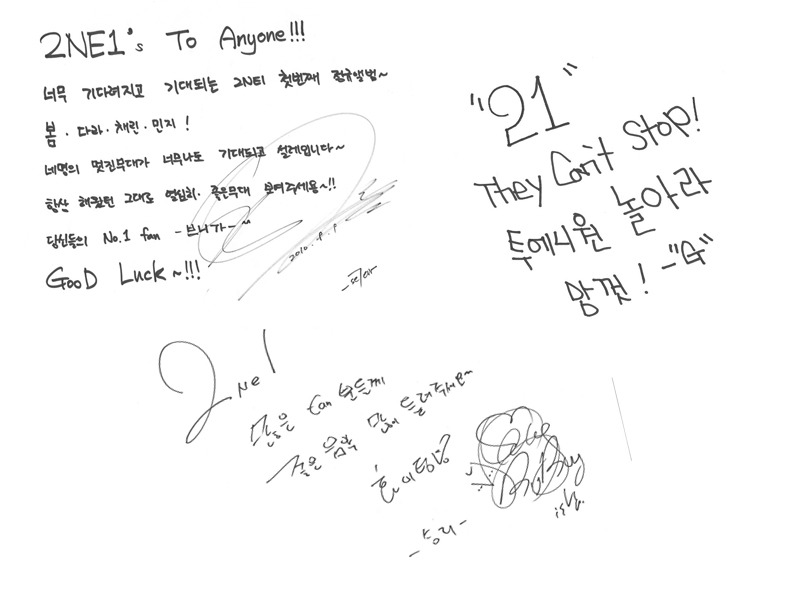 2NE1's To Anyone!!!
너무 기다려지고 기대되는 2NE1 첫번째 정규앨범~
봄·다라·채린·민지!
네명의 멋진무대가 너무나도 기대되고 설레입니다~
항상 해왔던 그대로 열심히·좋은무대 보여주세용~!!
당신들의 No.1 fan -쁘니가-~
Good Luck~!!!
2010.9.9
"21"
They Can't Stop!
투에니원 놀아라
맘껏! -"G"
2NE1
많은 fan 분들께
좋은 음악 많이 들려주세요~
화이팅
-승리-